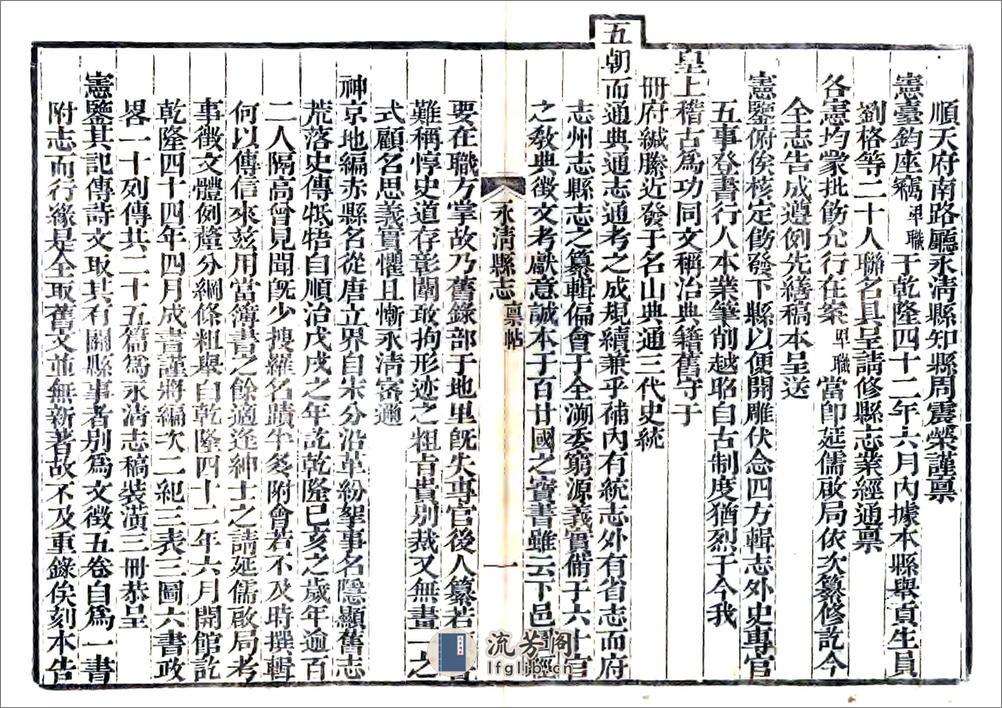 順天府南路廳永清縣知縣周震榮謹稟
憲臺鈞座竊卑職于乾隆四十二年六月內據本縣舉貢生員
劉格等二十人聯名具呈請修縣志業經通稟
各憲均蒙批飭允行在案卑職當卽延儒啟局依次纂修訖今
全志告成遵例先繕稿本呈送
憲鑒俯俟核定飭發下縣以便開雕伏念四方輯志外史專官
五事登書行人本業筆削越昭自古制度猶烈于今我
皇上稽古爲功同文稱治典籍舊守于
冊府緘縢近發于名山典通三代史統
五朝而通典通志通考之成規續兼乎補內有統志外有省志而府
志州志縣志之纂輯偏會于全溯委窮源義實備于六十官
之敎典徵文考獻意誠本于百廿國之寶書雖云下邑經
永淸縣志 稟帖 一
要在職方掌故乃舊錄部于地里旣失專官後人纂若
難稱惇史道存彰闡敢拘形迹之粗旨貴別裁又無畫一之
式顧名思義實懼且慚永淸密邇
神京地編赤縣名從唐立界自宋分沿革紛拏事名隱顯舊志
荒落史傳牴牾自順治戊戌之年訖乾隆己亥之歲年逾百
二人隔高曾見聞旣少搜羅名蹟半多附會若不及時撰輯
何以傳信來兹用當簿書之餘適逢紳士之請延儒啟局考
事徵文體例釐分綱條粗舉自乾隆四十二年六月開館訖
乾隆四十四年四月成書謹將編次二紀三表三圖六書政
畧一十列傳共二十五篇爲永淸志稿裝潢三冊恭呈
憲鑒其記傳詩文取其有關縣事者別爲文徵五卷自爲一書
附志而行緣是全取舊文並無新著故不及重錄俟刻本告
流芳阁
lfglib.cn